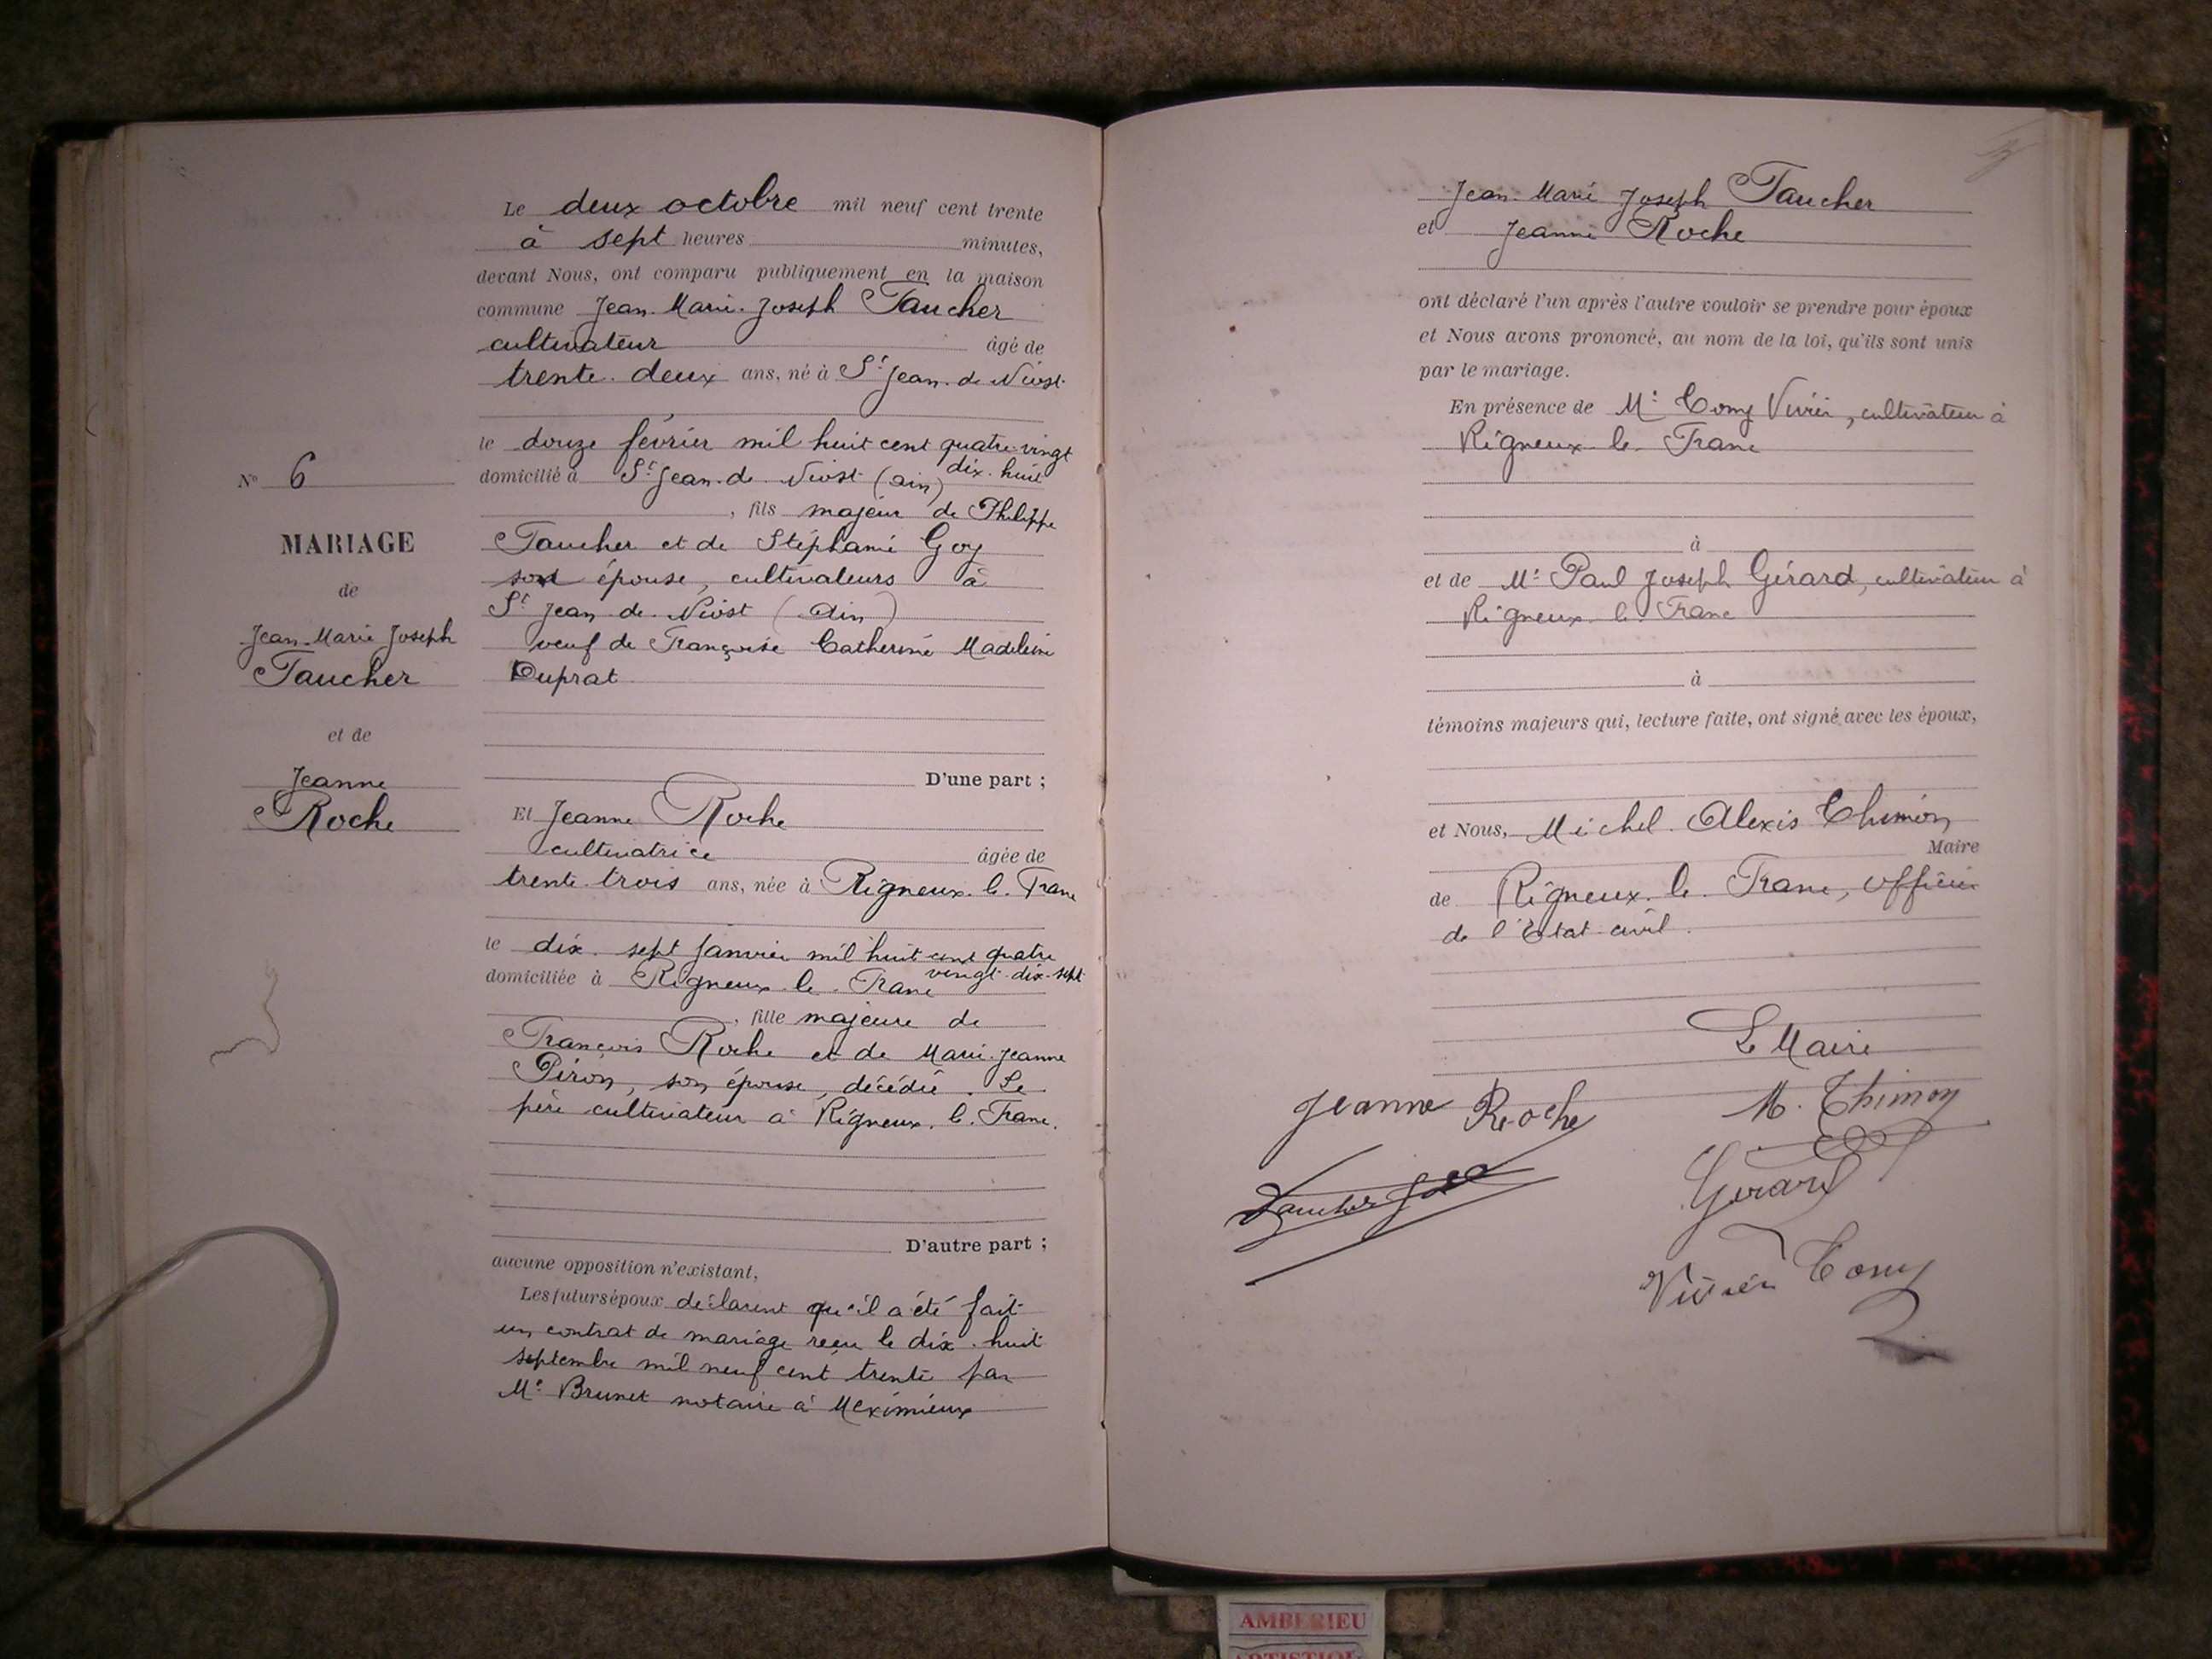 Le deux octobre mil neuf cent trente
à sept heures minutes,
devant Nous, ont comparu publiquement en la maison
commune Jean-Marie-Joseph Taucher
cultivateur âgé de
trente-deux ans, né à St Jean-de-Niost
le douze février mil huit cent quatre-vingt
dix-huit
domicilié à St Jean-de-Niost (ain)
, fils majeur de Philippe
Taucher et de Stéphanie Goy
son épouse, cultivateurs à
St Jean-de-Niost (Ain)
veuf de Françoise Catherine Madeleine
Duprat
D'une part ;
N° 6
MARIAGE
de
Jean-Marie Joseph
Taucher
et de
Jeanne
Roche
Et Jeanne Roche
cultivatrice âgée de
trente-trois ans, née à Rigneux-le-Franc
le dix-sept janvier mil huit cent quatre
vingt-dix-sept
domiciliée à Rigneux-le-Franc
, fille majeure de
François Roche et de Marie-Jeanne
Piron, son épouse, décédée. Le
père cultivateur à Rigneux-le-Franc.
D'autre part ;
aucune opposition n'existant,
Les futurs époux déclarent qu'il a été fait
un contrat de mariage reçu le dix-huit
septembre mil neuf cent trente par
Me Brunet notaire à Meximieux
Jean-Marie Joseph Taucher
et Jeanne Roche
ont déclaré l'un après l'autre vouloir se prendre pour époux
et Nous avons prononcé, au nom de la loi, qu'ils sont unis
par le mariage.
En présence de Mr Tony Vivier, cultivateur à
Rigneux-le-Franc
à
et de Mr Paul Joseph Gérard, cultivateur à
Rigneux-le-Franc
à
témoins majeurs qui, lecture faite, ont signé avec les époux,
et Nous, Michel Alexis Thimon
Maire
de Rigneux-le-Franc, officier
de l'Etat-civil.
Le Maire
Jeanne Roche
M. Thimon
Taucher
Gérard
Vivier Tony
AMBERIEU